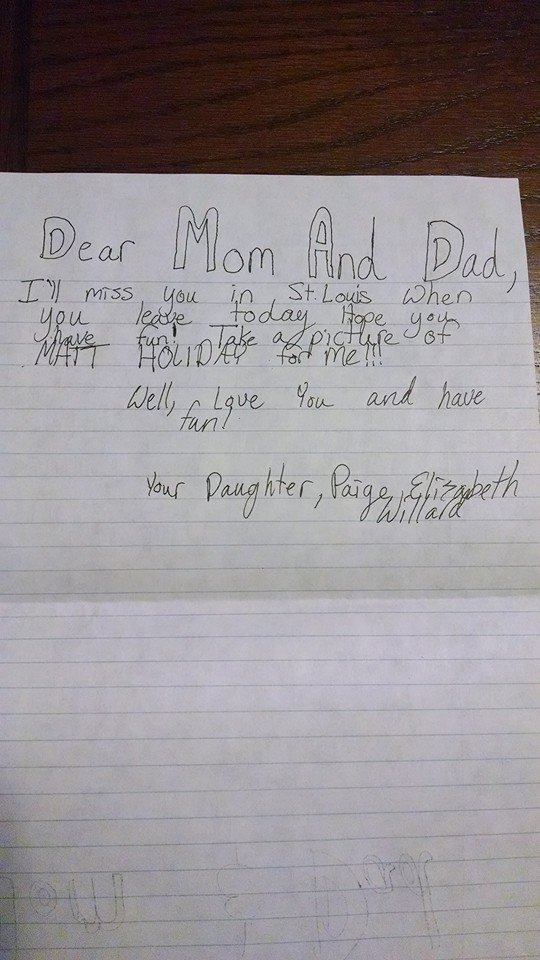 Dear Mom And Dad,
I'll miss you in St. Louis when
you leave today Hope you
have fun! Take a picture of
MATT HOLIDAY for me!!!
Well, Love You and have
fun!
Your Daughter, Paige Elizabeth
Willard